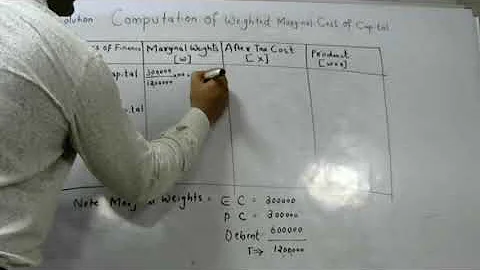 olution Computation of Weighted Marginal Cost of Capital
s of Finance Marginal Weights After Tax Cost Product
[W] [X] [W×X]
pital 300000
1200000
tal
Note Mar al Weights = E C = 300000
P C = 300000
Debent 600000
T⇒ 1200000